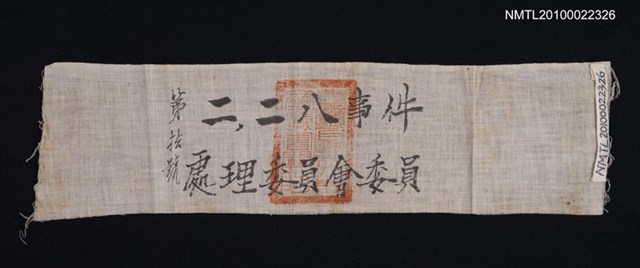 NMTL20100022326
二,二八事件
處理委員會委員
第拾號
NMTL20100022326